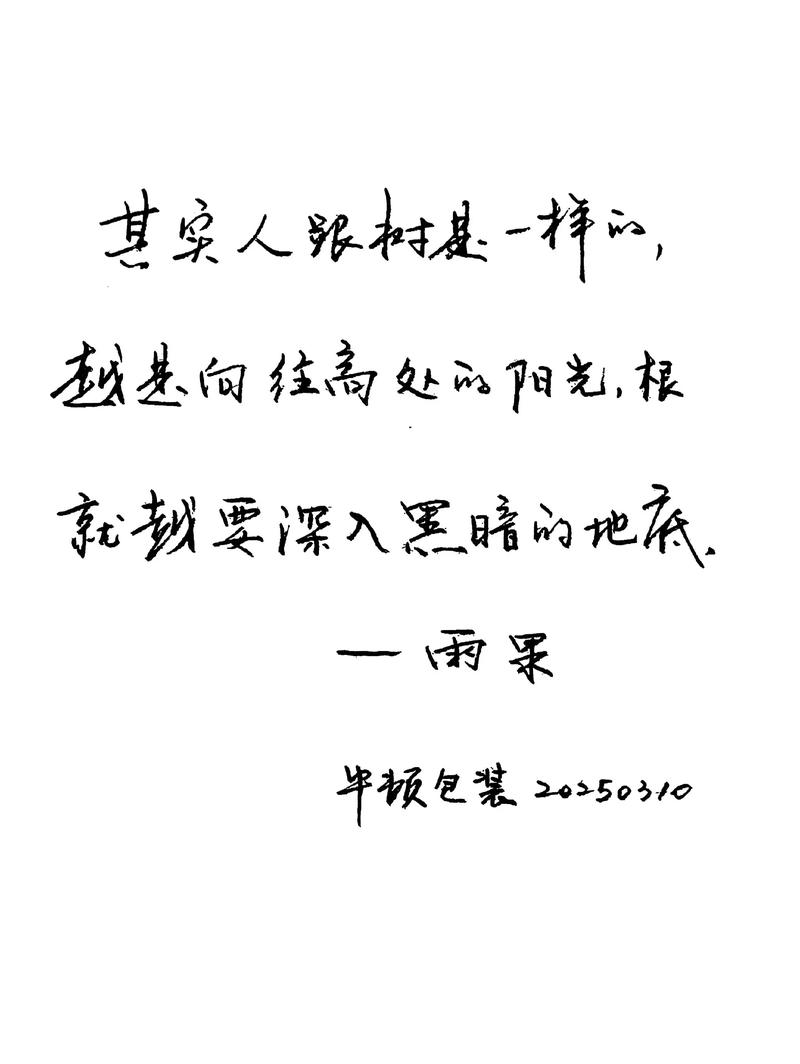 其实人跟树是一样的,
越是向往高处的阳光,根
就越要深入黑暗的地底.
— 雨果
毕顿包装 20250310